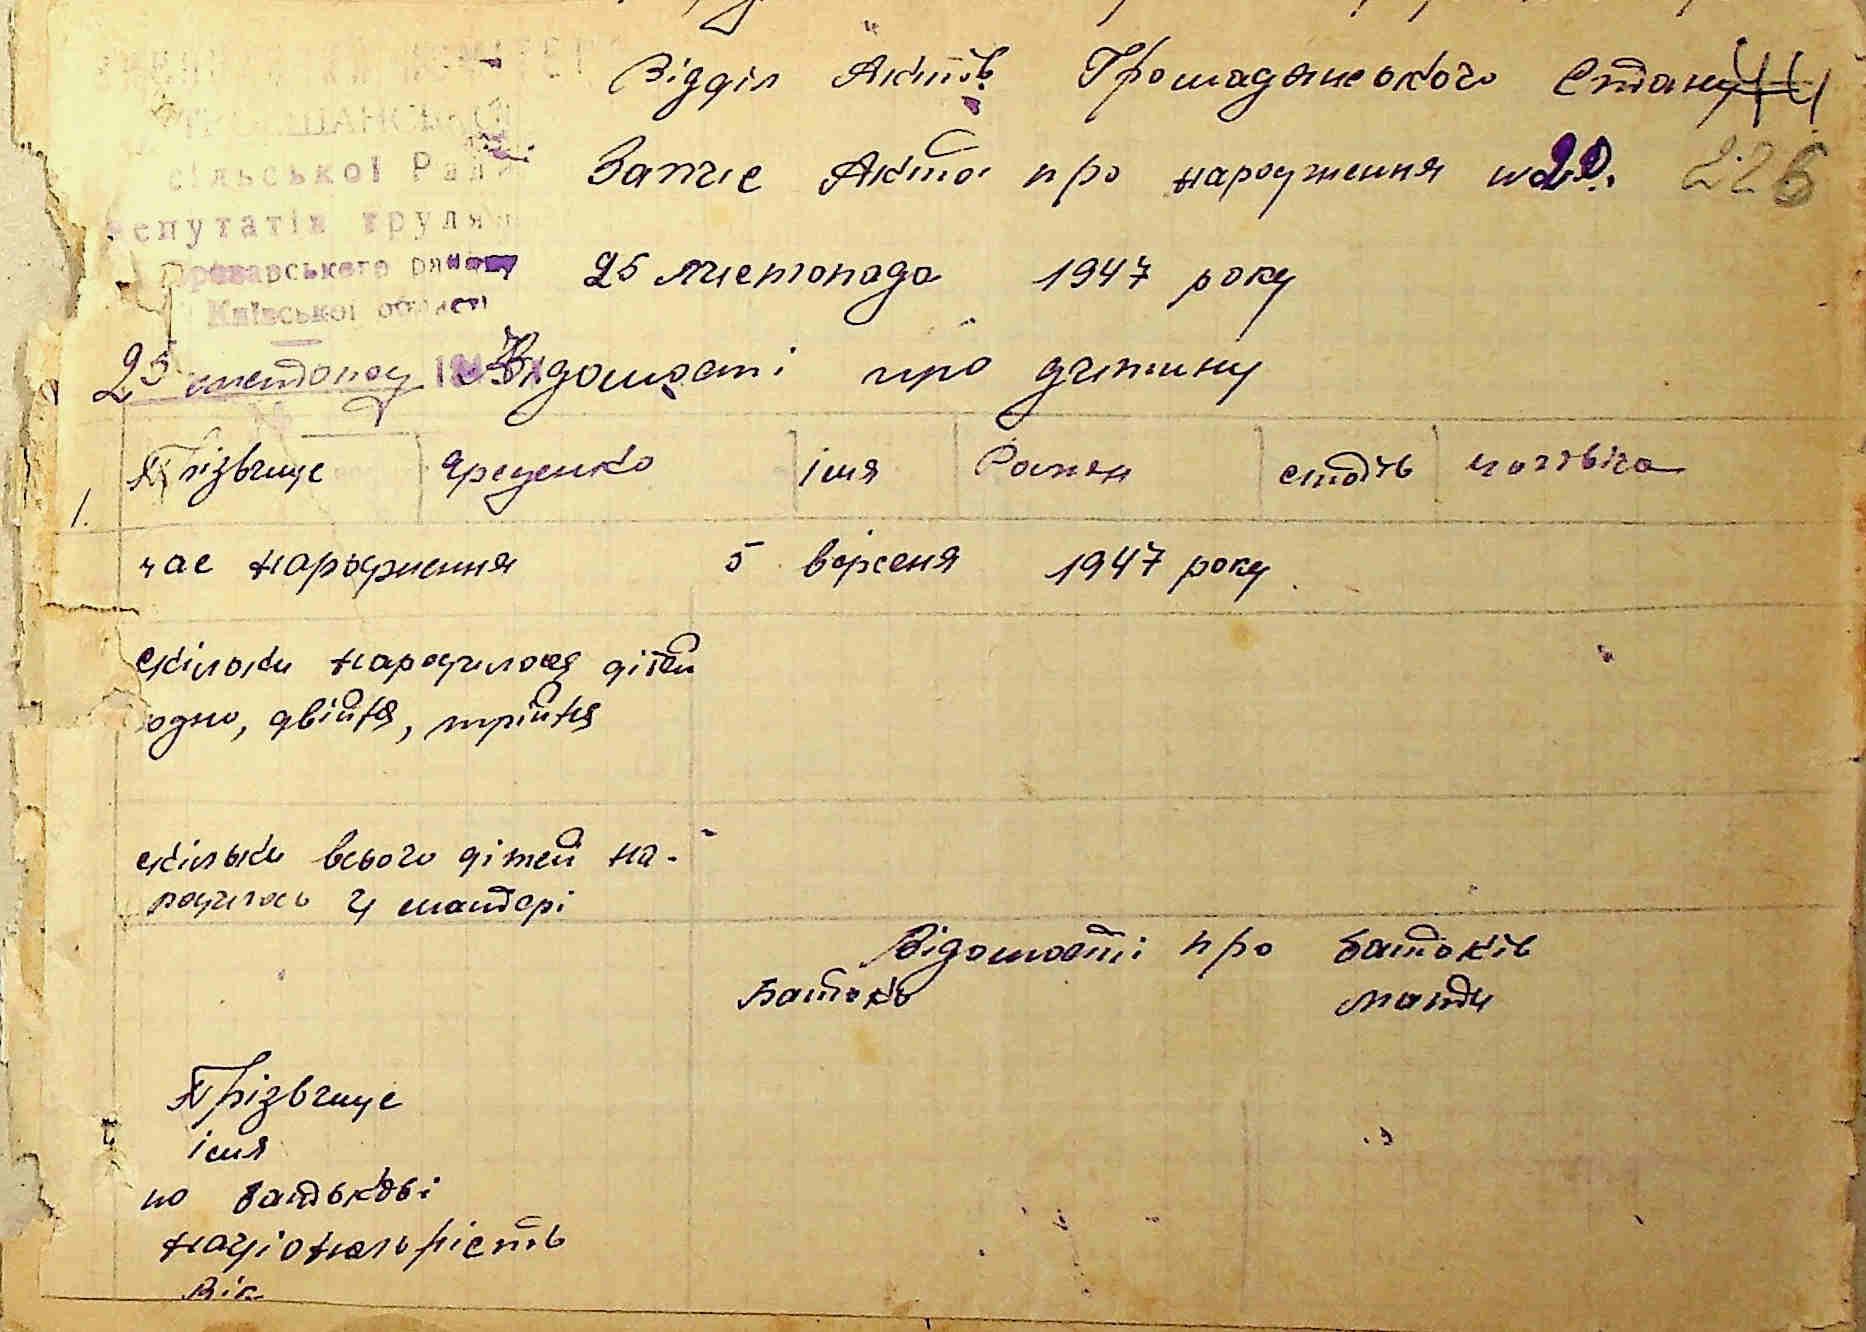 Відділ Актів Громадянського Стану
Запис Акта про народження № 20. 226
сільської Ради
депутатів трудя
Броварського району
Київської області
25 листопада 1947 року
25 листопад 194
Відомості про дитину
1. Прізвище Яреценко імя Роман стать чоловіча
час народження 5 вересня 1947 року
скільки народилося дітей
одно, двійня, трійня
скільки всього дітей на-
родилось у матері
Відомості про батьків
Батько Мати
Прізвище
імя
по батькові
національність
Вік